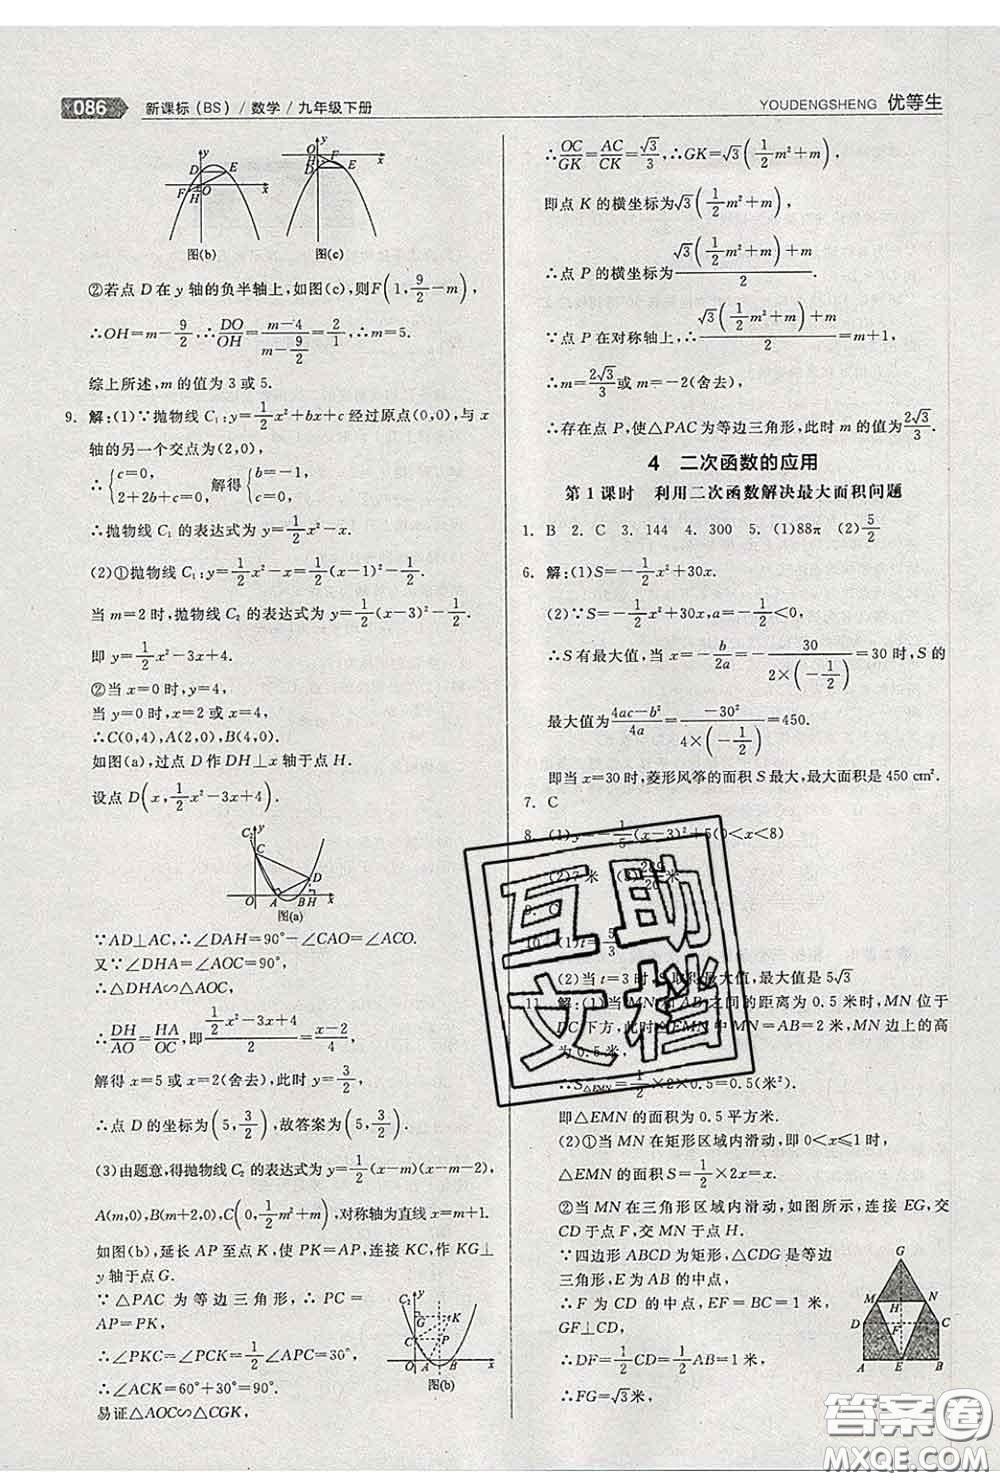 086 新课标(BS)/数学/九年级下册
YOUDENGSHENG 优等生
图(b) 图(c)
②若点 D 在 y 轴的负半轴上,如图(c),则F(1, 9/2−m)
∴OH=m−9/2,∴DO/OH=(m−4)/(m−9/2)=2/1,∴m=5.
综上所述,m 的值为 3 或 5.
9. 解:(1)∵抛物线 C₁:y=1/2x²+bx+c 经过原点(0,0),与 x
轴的另一个交点为(2,0),
∴{c=0, 2+2b+c=0, 解得{b=−1, c=0.
∴抛物线 C₁ 的表达式为 y=1/2x²−x.
(2)①抛物线 C₁:y=1/2x²−x=1/2(x−1)²−1/2.
当 m=2 时,抛物线 C₂ 的表达式为 y=1/2(x−3)²−1/2,
即 y=1/2x²−3x+4.
②当 x=0 时,y=4,
当 y=0 时,x=2 或 x=4.
∴C(0,4),A(2,0),B(4,0).
如图(a),过点 D 作 DH⊥x 轴于点 H.
设点 D(x, 1/2x²−3x+4).
图(a)
∵AD⊥AC,∴∠DAH=90°−∠OAC=∠ACO.
又∵∠DHA=∠AOC=90°,
∴△DHA∽△AOC,
∴DH/AO=HA/OC,即(1/2x²−3x+4)/2=(x−2)/4,
解得 x=5 或 x=2(舍去),此时 y=3/2,
∴点 D 的坐标为(5, 3/2),故答案为(5, 3/2).
(3)由题意,得抛物线 C₂ 的表达式为 y=1/2(x−m)(x−m−2),
A(m,0),B(m+2,0),C(0, 1/2m²+m),对称轴为直线 x=m+1.
如图(b),延长 AP 至点 K,使 PK=AP,连接 KC,作 KG⊥
y 轴于点 G.
∵△PAC 为等边三角形,∴PC=
AP=PK,
∴∠PKC=∠PCK=1/2∠APC=30°,
∴∠ACK=60°+30°=90°,
易证△AOC∽△CGK,
图(b)
∴OC/GK=AC/CK=√3/3,∴GK=√3(1/2m²+m),
即点 K 的横坐标为√3(1/2m²+m),
∴点 P 的横坐标为(√3(1/2m²+m)+m)/2.
∵点 P 在对称轴上,∴(√3(1/2m²+m)+m)/2=m+1,
∴m=2√3/3或 m=−2(舍去),
∴存在点 P,使△PAC为等边三角形,此时 m 的值为2√3/3.
4 二次函数的应用
第 1 课时 利用二次函数解决最大面积问题
1. B 2. C 3. 144 4. 300 5. (1)88π (2)5/2
6. 解:(1)S=−1/2x²+30x.
(2)∵S=−1/2x²+30x,a=−1/2<0,
∴S 有最大值,当 x=−b/2a=−30/(2×(−1/2))=30 时,S 的
最大值为(4ac−b²)/4a=−30²/(4×(−1/2))=450.
即当 x=30 时,菱形风筝的面积 S 最大,最大面积是 450 cm².
7. C
8. (1)y=−1/5(x−3)²+5(0<x<8)
(2)7 米 (3)289/20米
9. C
10. (1)t=5/3
(2)当 t=3时,S取得最大值,最大值是 5√3
11. 解:(1)当 MN 和 AB 之间的距离为 0.5 米时,MN 位于
DC 下方,此时△EMN 中 MN=AB=2 米,MN 边上的高
为 0.5 米,
∴S△EMN=1/2×2×0.5=0.5(米²).
即△EMN 的面积为 0.5 平方米.
(2)①当 MN 在矩形区域内滑动,即 0<x≤1 时,
△EMN 的面积 S=1/2×2x=x.
②当 MN 在三角形区域内滑动,如图所示,连接 EG,交
CD于点 F,交 MN 于点 H.
∵四边形 ABCD 为矩形,△CDG 是等边
三角形,E 为 AB 的中点,
∴F 为 CD 的中点,EF=BC=1 米,
GF⊥CD,
∴DF=1/2CD=1/2×2=1(米),
∴FG=√3米.
互助
文档
答案圈
MXQE.COM